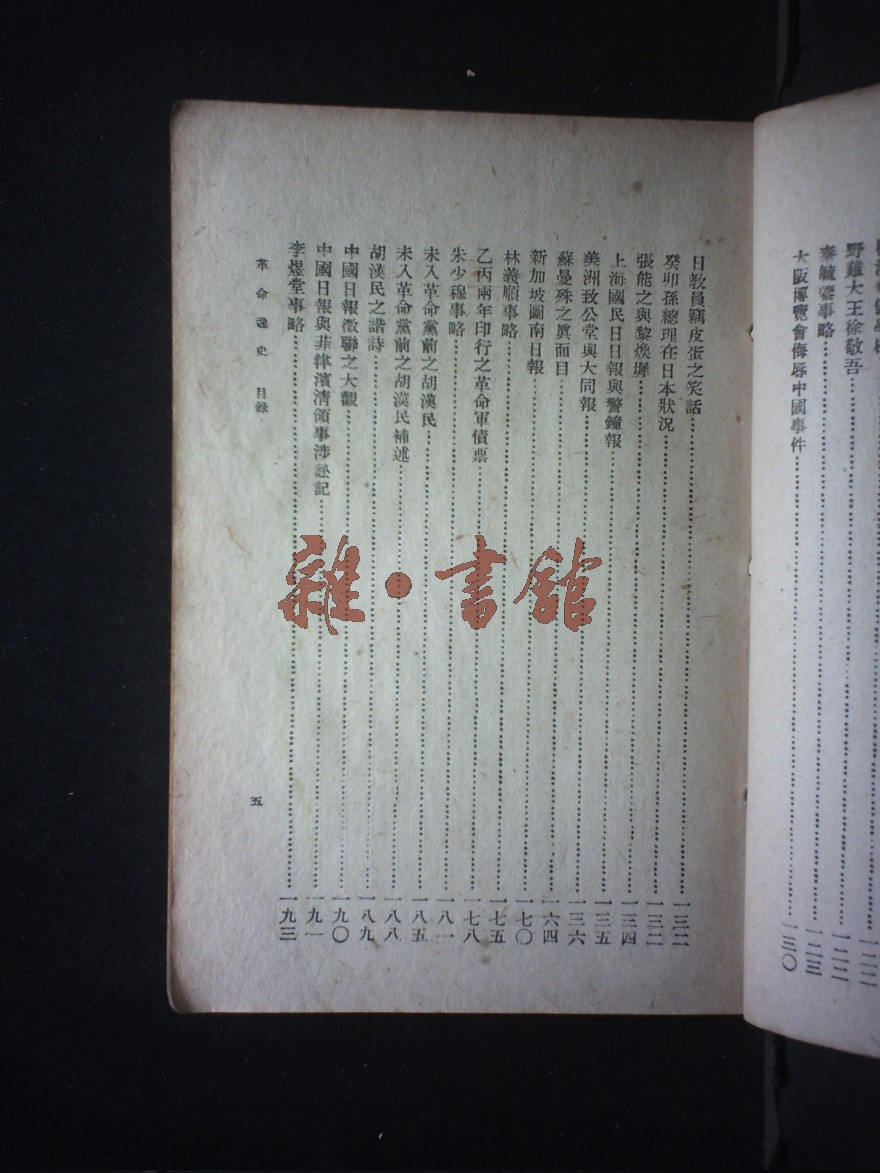 野雞大王徐敬吾……一二二
秦毓鎏事略……一二三
大阪博覽會侮辱中國事件……一三〇
日教員竊皮蛋之笑話……一三二
癸卯孫總理在日本狀況……一三二
張能之與黎煥墀……一三四
上海國民日日報與警鐘報……一三五
美洲致公堂與大同報……一三六
蘇曼殊之眞面目……一六四
新加坡圖南日報……一七〇
林義順事略……一七五
乙丙兩年印行之革命軍債票……一七八
朱少穆事略……一八一
未入革命黨前之胡漢民……一八五
未入革命黨前之胡漢民補述……一八八
胡漢民之諧詩……一八九
中國日報徵聯之大觀……一九〇
中國日報與菲律濱清領事涉訟記……一九一
李煜堂事略……一九三
革命逸史 目錄
五
雜·書館